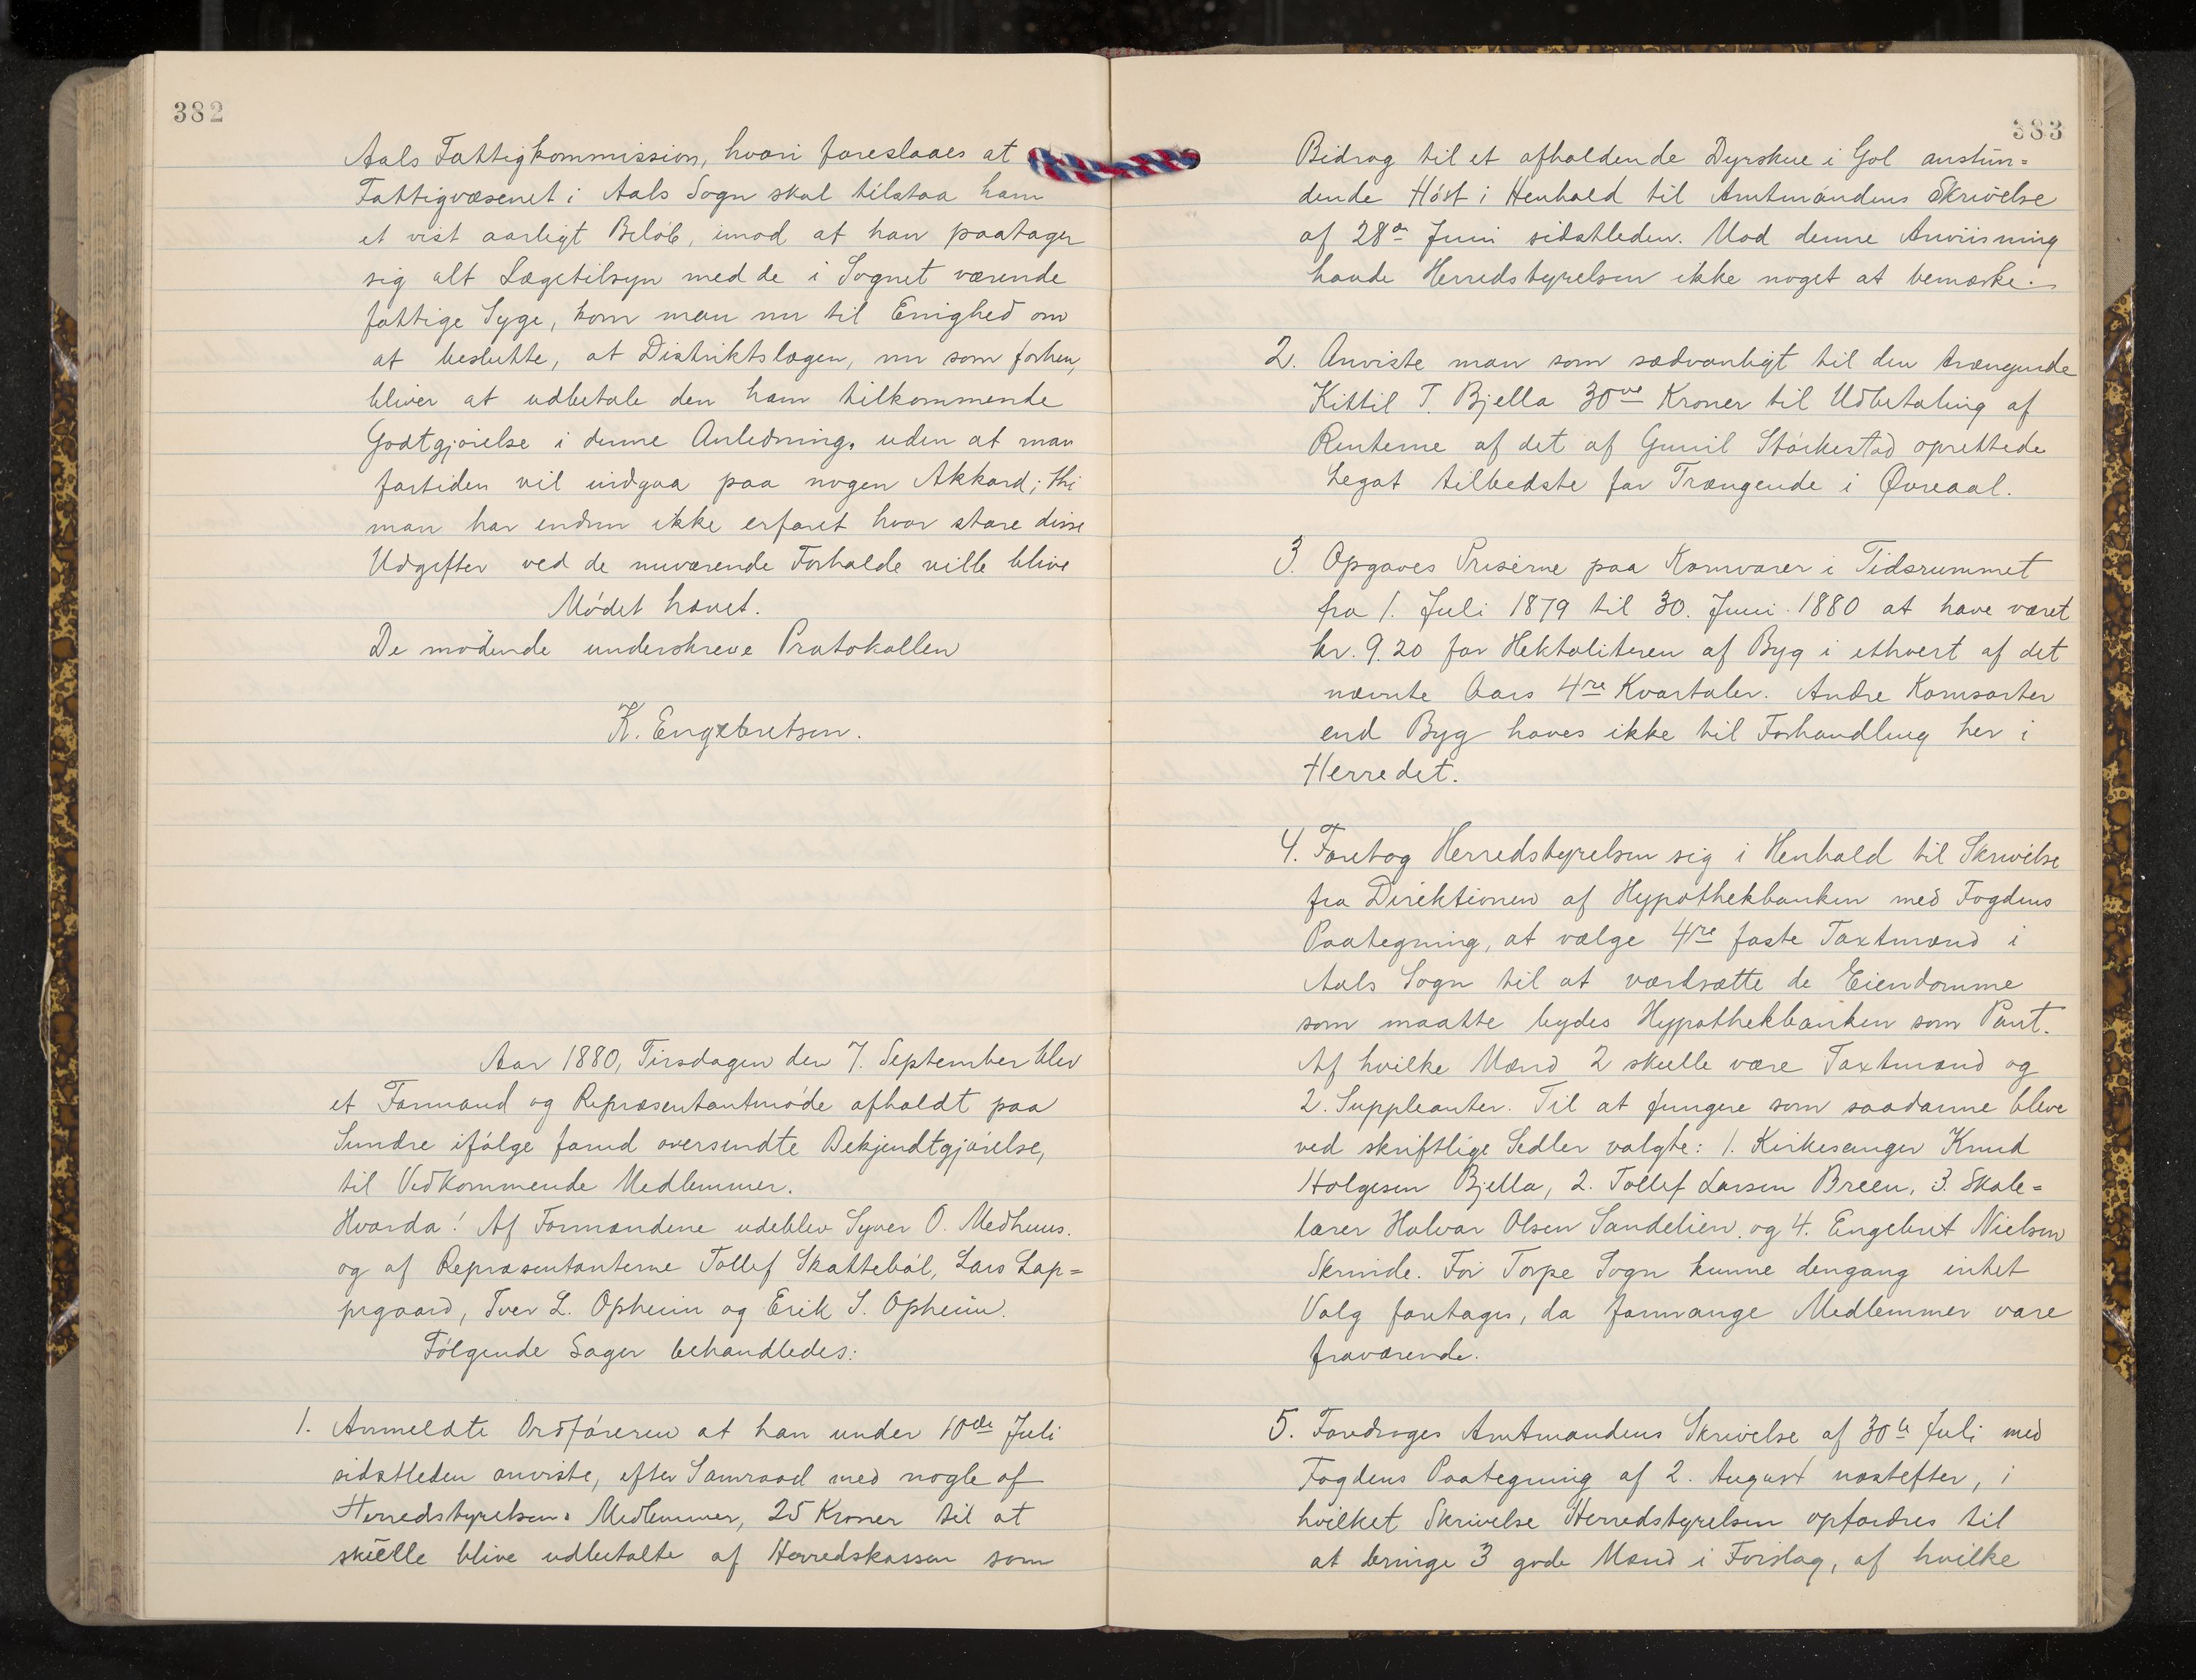 382
Aals Fattigkommission, hvori foreslaaes at
Fattigvæsenet i Aals Sogn skal tilstaa ham
et vist aarligt Beløb, imod at han paatager
sig alt Lægetilsyn med de i Sognet værende
fattige Syge, kom man nu til Enighed om
at beslutte, at Distriktslægen, nu som forhen,
bliver at udbetale den ham tilkommende
Godtgjørelse i denne Anledning, uden at man
fortiden vil indgaa paa nogen Akkord; thi
man har endnu ikke erfaret hvor store disse
Udgifter ved de nuværende Forholde ville blive
Mødet hævet.
De mødende underskreve Protokollen
K. Engebretsen.
Aar 1880, Tirsdagen den 7. September blev
et Formand og Repræsentantmøde afholdt paa
Sundre ifølge forud oversendte Bekjendtgjørelse,
til Vedkommende Medlemmer.
Hvorda! Af Formændene udeblev Syver O. Medhuus.
og af Repræsentanterne Tollef Skattebøl, Lars Lap=
pegaard, Iver L. Opheim og Erik S. Opheim.
Følgende Sager behandledes:
1. Anmeldte Ordføreren at han under 10de Juli
sidstleden anviste, efter Samraad med nogle af
Herredstyrelsens Medlemmer, 25 Kroner til at
skulle blive udbetalte af Herredskassen som
383
Bidrag til et afholdende Dyrskue i Gol anstun=
dende Høst i Henhold til Amtmandens Skrivelse
af 28de Juni sidstleden. Mod denne Anviisning
havde Herredstyrelsen ikke noget at bemærke.
2. Anviste man som sædvanligt til den trængende
Kittil T. Bjella 30ve Kroner til Udbetaling af
Renterne af det af Gunil Størkestad oprettede
Legat tilbedste for Trængende i Øvreaal.
3. Opgaves Priserne paa Kornvarer i Tidsrummet
fra 1. Juli 1879 til 30. Juni 1880 at have været
kr. 9.20 for Hektoliteren af Byg i ethvert af det
nævnte Aars 4re Kvartaler. Andre Kornsorter
end Byg haves ikke til Forhandling her i
Herredet.
4. Foretog Herredstyrelsen sig i Henhold til Skrivelse
fra Direktionen af Hypothekbanken med Fogdens
Paategning, at vælge 4re faste Taxtmænd i
Aals Sogn til at værdsætte de Eiendomme
som maatte bydes Hypothekbanken som Pant.
Af hvilke Mænd 2 skulle være Taxtmænd og
2. Suppleanter. Til at fungere som saadanne bleve
ved skriftlige Sedler valgte: 1. Kirkesanger Knud
Holgesen Bjella, 2. Tollef Larsen Breen, 3. Skole=
lærer Halvor Olsen Sandelien, og 4. Engebret Nielsen
Skrinde. For Torpe Sogn kunne dengang intet
Valg foretages, da formange Medlemmer vare
fraværende.
5. Foredroges Amtmandens Skrivelse af 30te Juli med
Fogdens Paategning af 2. August næstefter, i
hvilket Skrivelse Herredstyrelsen opfordres til
at bringe 3 gode Mænd i Forslag, af hvilke